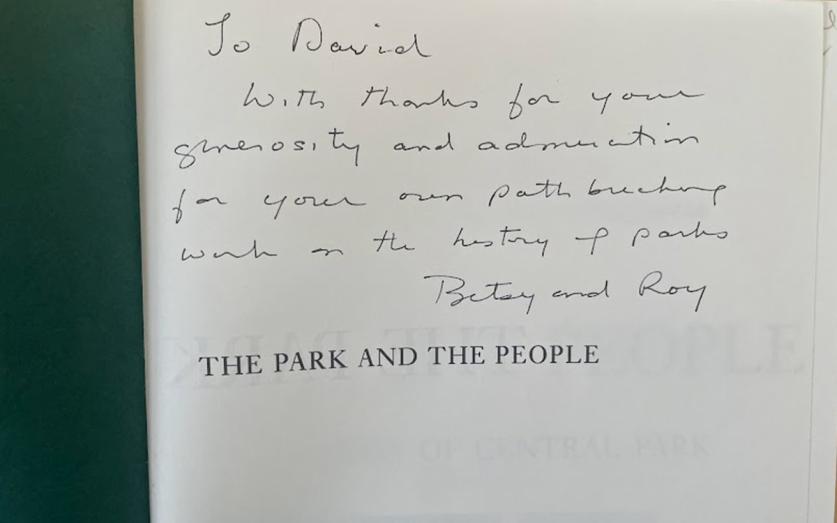 To David
With thanks for your
generosity and admiration
for your own path breaking
work on the history of parks
Betsy and Roy
THE PARK AND THE PEOPLE
OF CENTRAL PARK